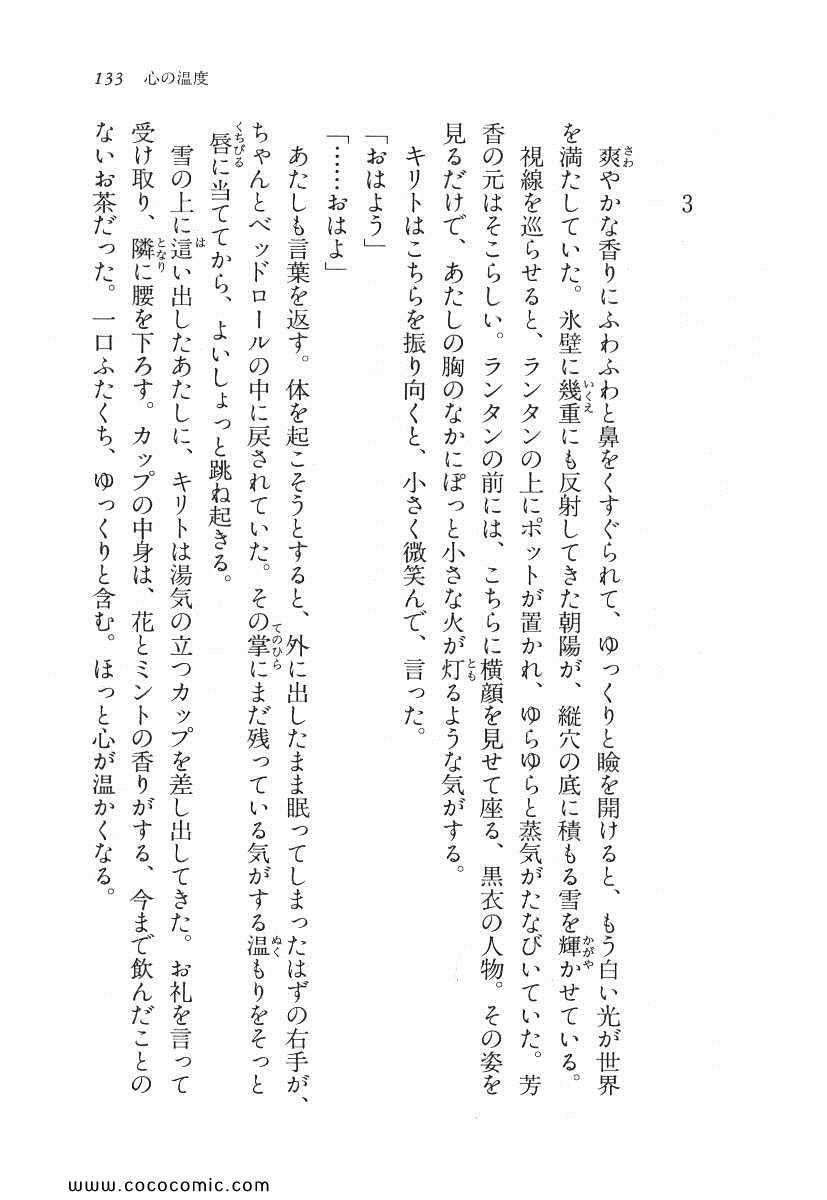 133 心の温度
3
爽やかな香りにふわふわと鼻をくすぐられて、ゆっくりと瞼を開けると、もう白い光が世界
を満たしていた。氷壁に幾重にも反射してきた朝陽が、縦穴の底に積もる雪を輝かせている。
視線を巡らせると、ランタンの上にポットが置かれ、ゆらゆらと蒸気がたなびいていた。芳
香の元はそこらしい。ランタンの前には、こちらに横顔を見せて座る、黒衣の人物。その姿を
見るだけで、あたしの胸のなかにぽっと小さな火が灯るような気がする。
キリトはこちらを振り向くと、小さく微笑んで、言った。
「おはよう」
「……おはよ」
あたしも言葉を返す。体を起こそうとすると、外に出したまま眠ってしまったはずの右手が、
ちゃんとベッドロールの中に戻されていた。その掌にまだ残っている気がする温もりをそっと
唇に当ててから、よいしょっと跳ね起きる。
雪の上に這い出したあたしに、キリトは湯気の立つカップを差し出してきた。お礼を言って
受け取り、隣に腰を下ろす。カップの中身は、花とミントの香りがする、今まで飲んだことの
ないお茶だった。一口ふたくち、ゆっくりと含む。ほっと心が温かくなる。
www.cococomic.com/